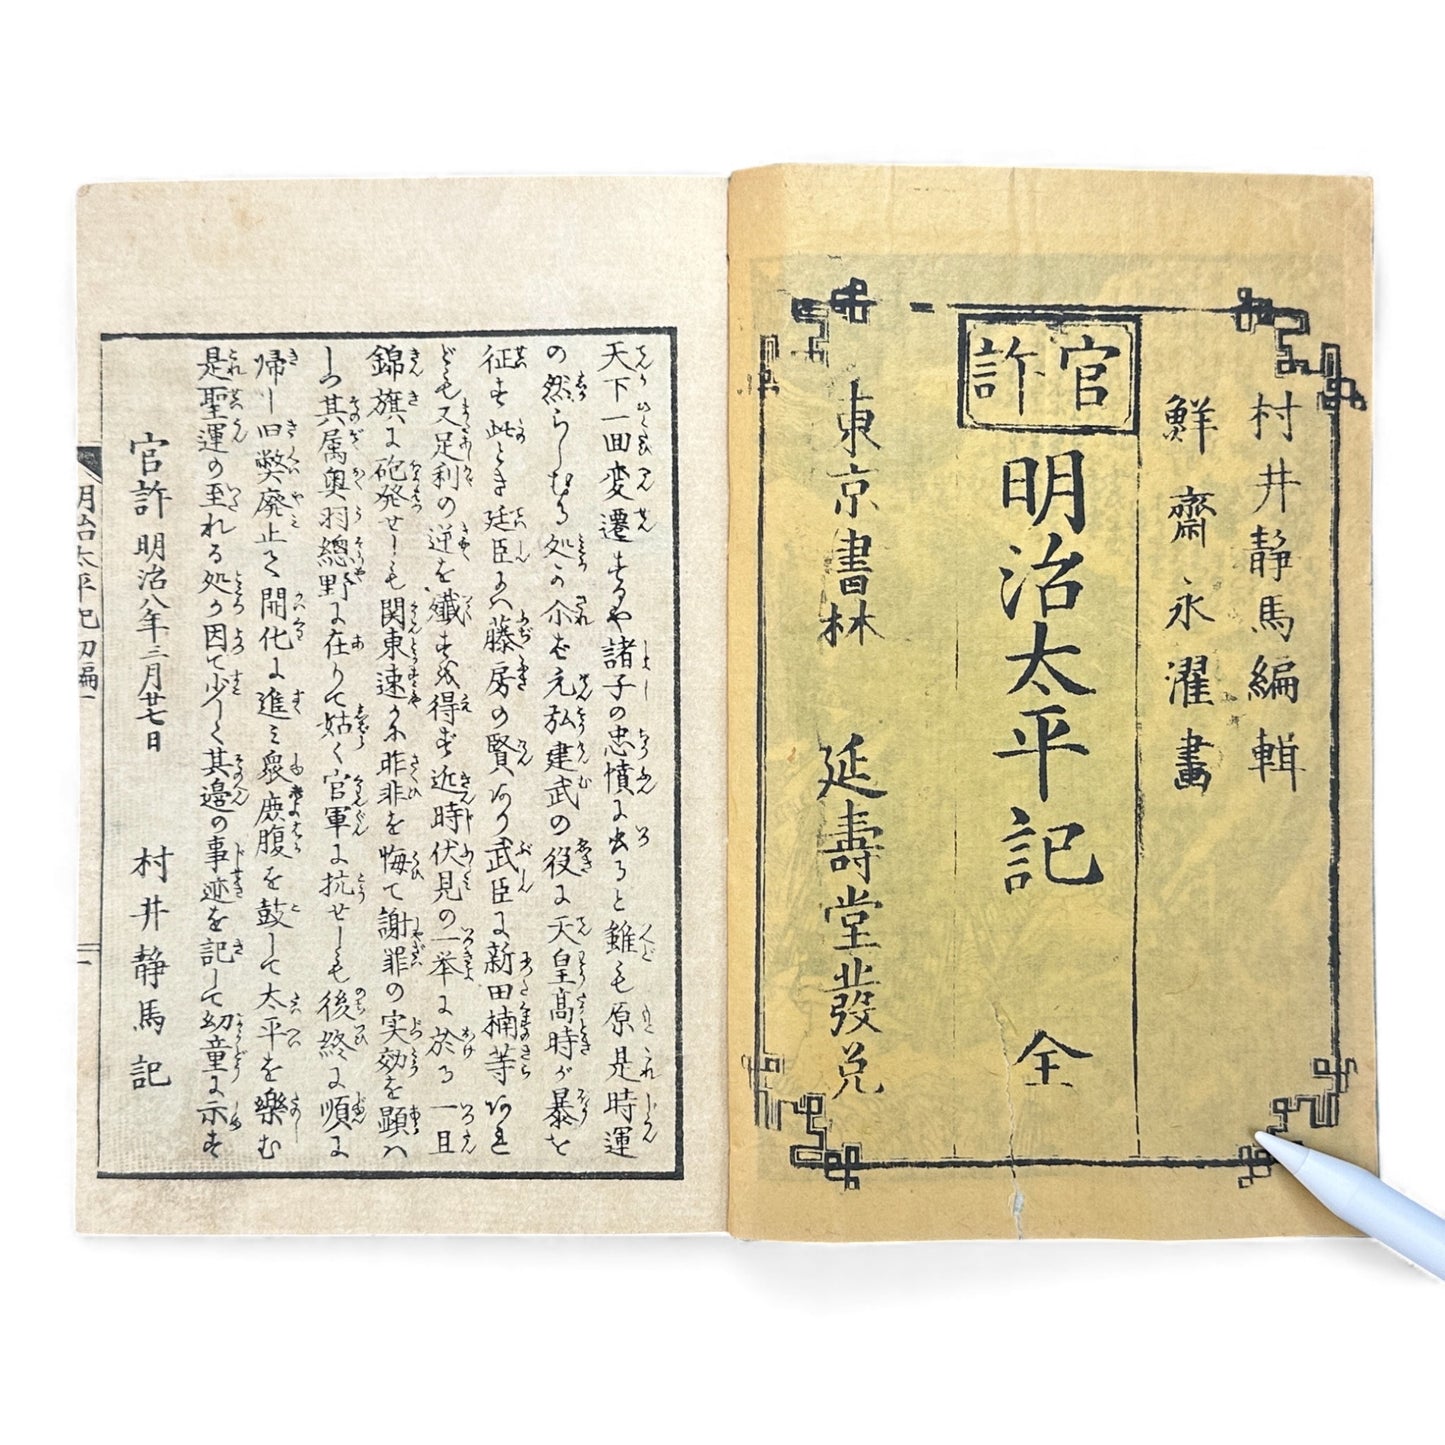 村井静馬編輯
鮮齋永濯畫
官許
明治太平記 全
東京書林 延壽堂發兌
天下一回変遷するや諸子の忠憤に出ると雖も原是時運
の然らしむる処か尓ば元弘建武の役に天皇高時が暴を
征す此とき廷臣には藤房の賢あり武臣に新田楠等あれ
ども又足利の逆を殲すを得ず近時伏見の一挙に於る一旦
錦旗に砲発せしも関東速に昨非を悔て謝罪の実効を顕は
しつ其属奥羽總野に在りて姑く官軍に抗せしも後終に順に
帰し旧弊廃止て開化に進み衆庶腹を鼓して太平を樂む
是聖運の至れる処か因て少しく其邉の事迹を記して幼童に示す
官許明治八年三月廿七日 村井静馬記
明治太平記初編一